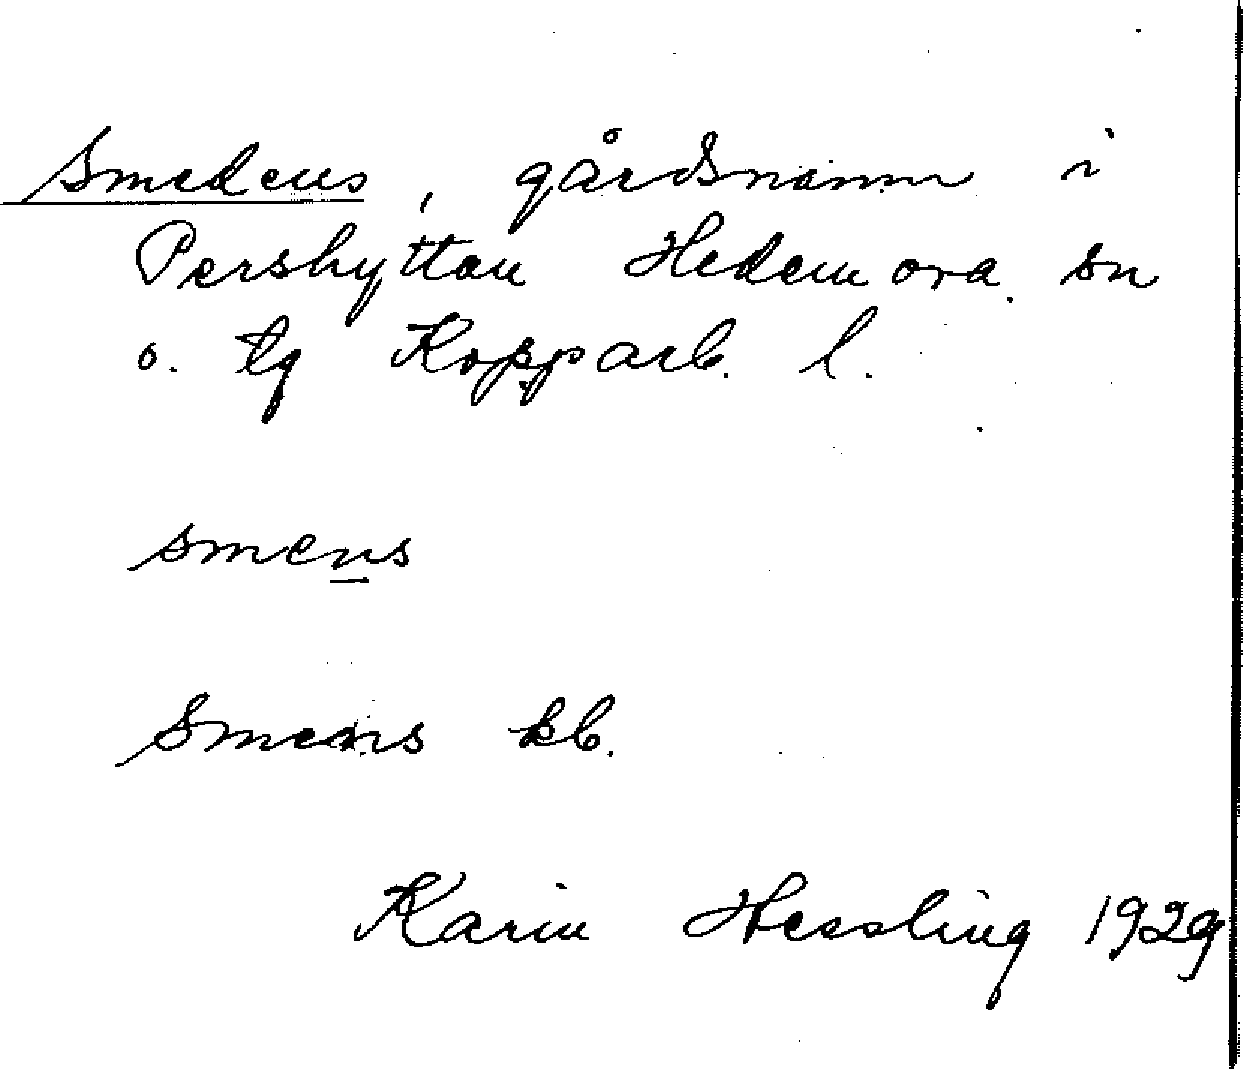 Smedens, gårdsnamn i
Pershyttan Hedemora sn
o. tg Kopparb. l.
smens
Smens kb.
Karin Hessling 1929